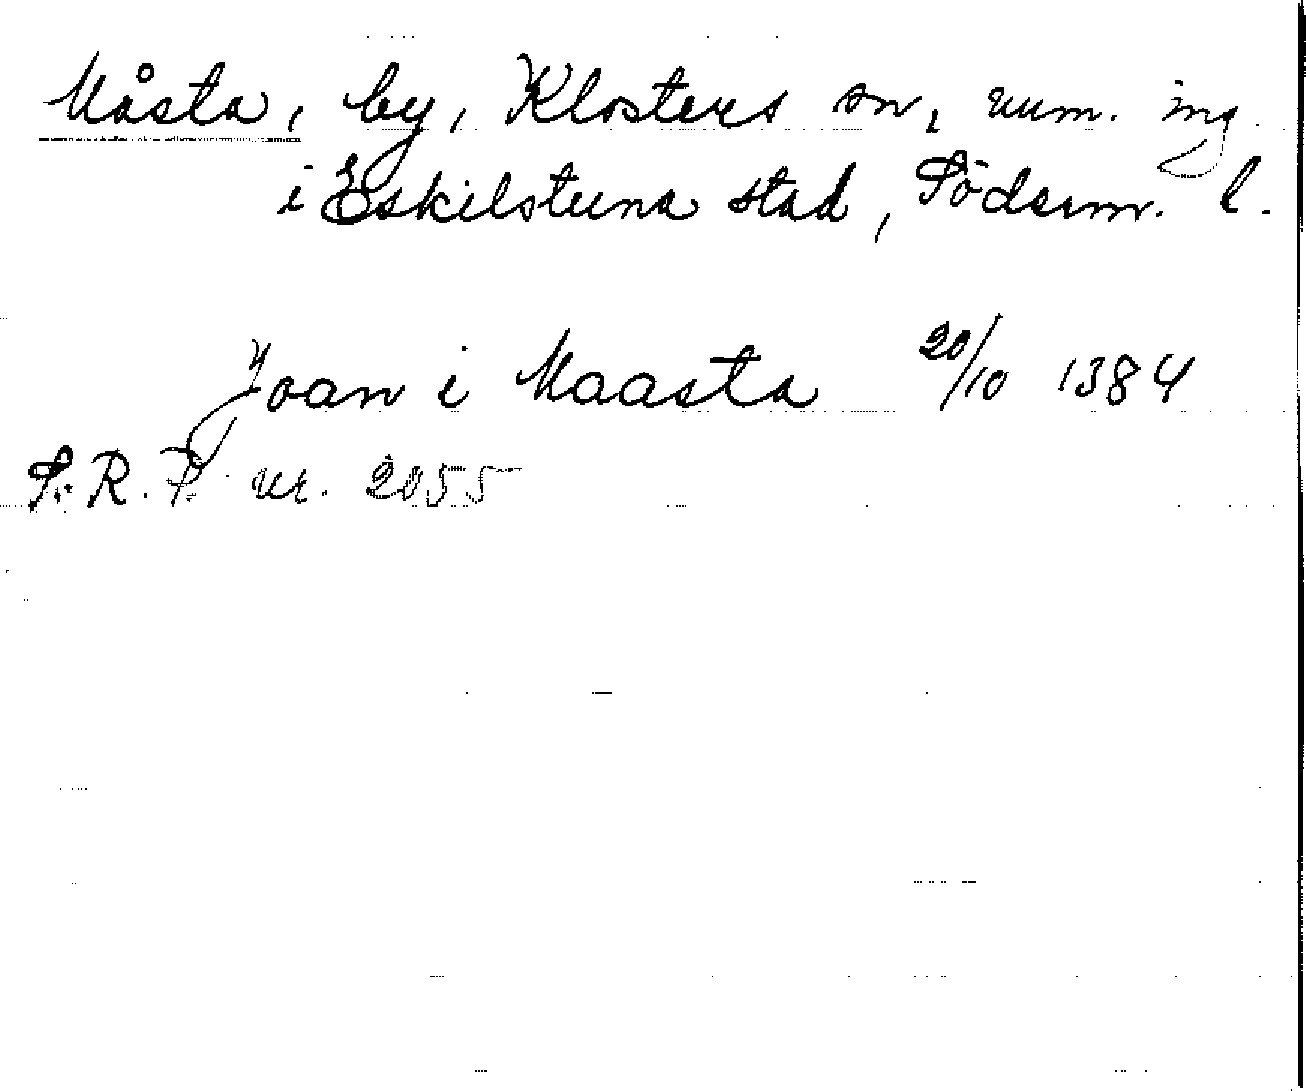 Måsta, by, Klosters sn, num. ing
i Eskilstuna stad, Söderm. l.
Joan i Maasta 20/10 1384
S.R.P. nr. 2055